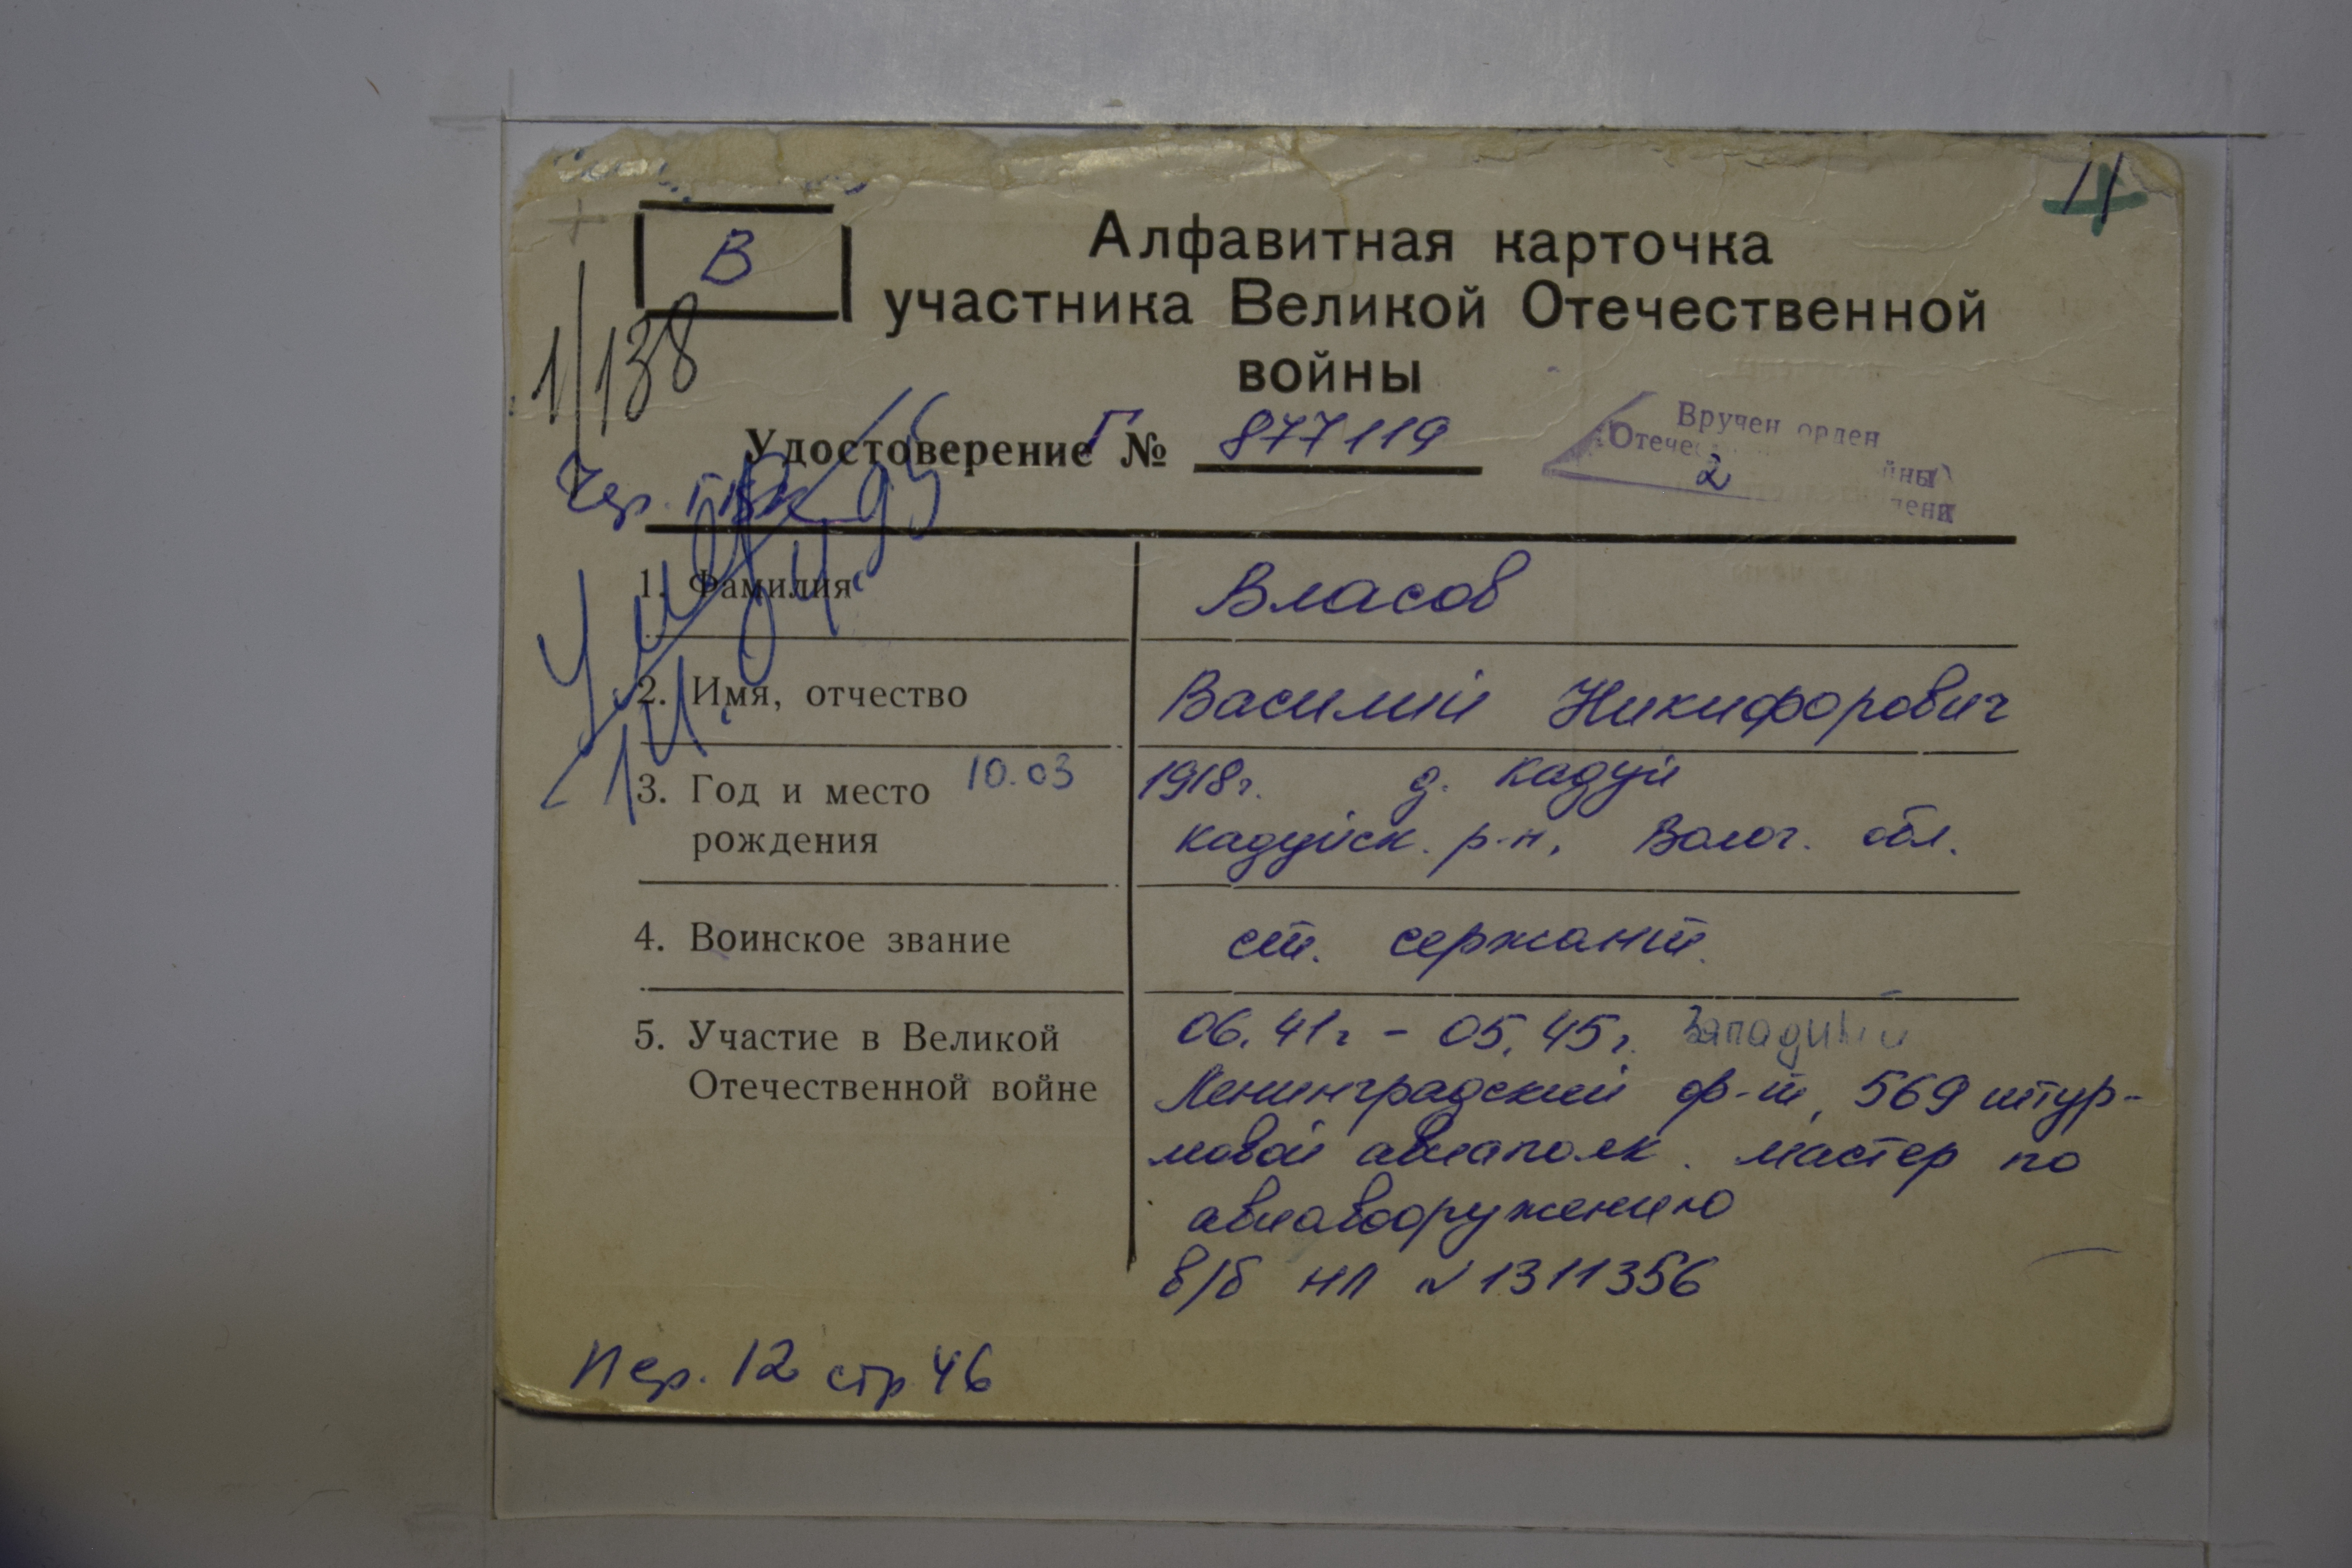 11
В
Алфавитная карточка
участника Великой Отечественной
войны
1/138
Удостоверение Г № 877119
Вручен орден
Отече йны
2 пени
Чер. ГВК
Умер 14.04.95
1. Фамилия Власов
2. Имя, отчество Василий Никифорович
3. Год и место 10.03 1918г. д. Кадуй
рождения Кадуйск. р-н, Волог. обл.
4. Воинское звание ст. сержант.
5. Участие в Великой 06.41г - 05.45г. Западный
Отечественной войне Ленинградский ф-т, 569 штур-
мовой авиаполк. мастер по
авиавооружению
в/б НЛ № 1311356
Пер. 12 стр 46